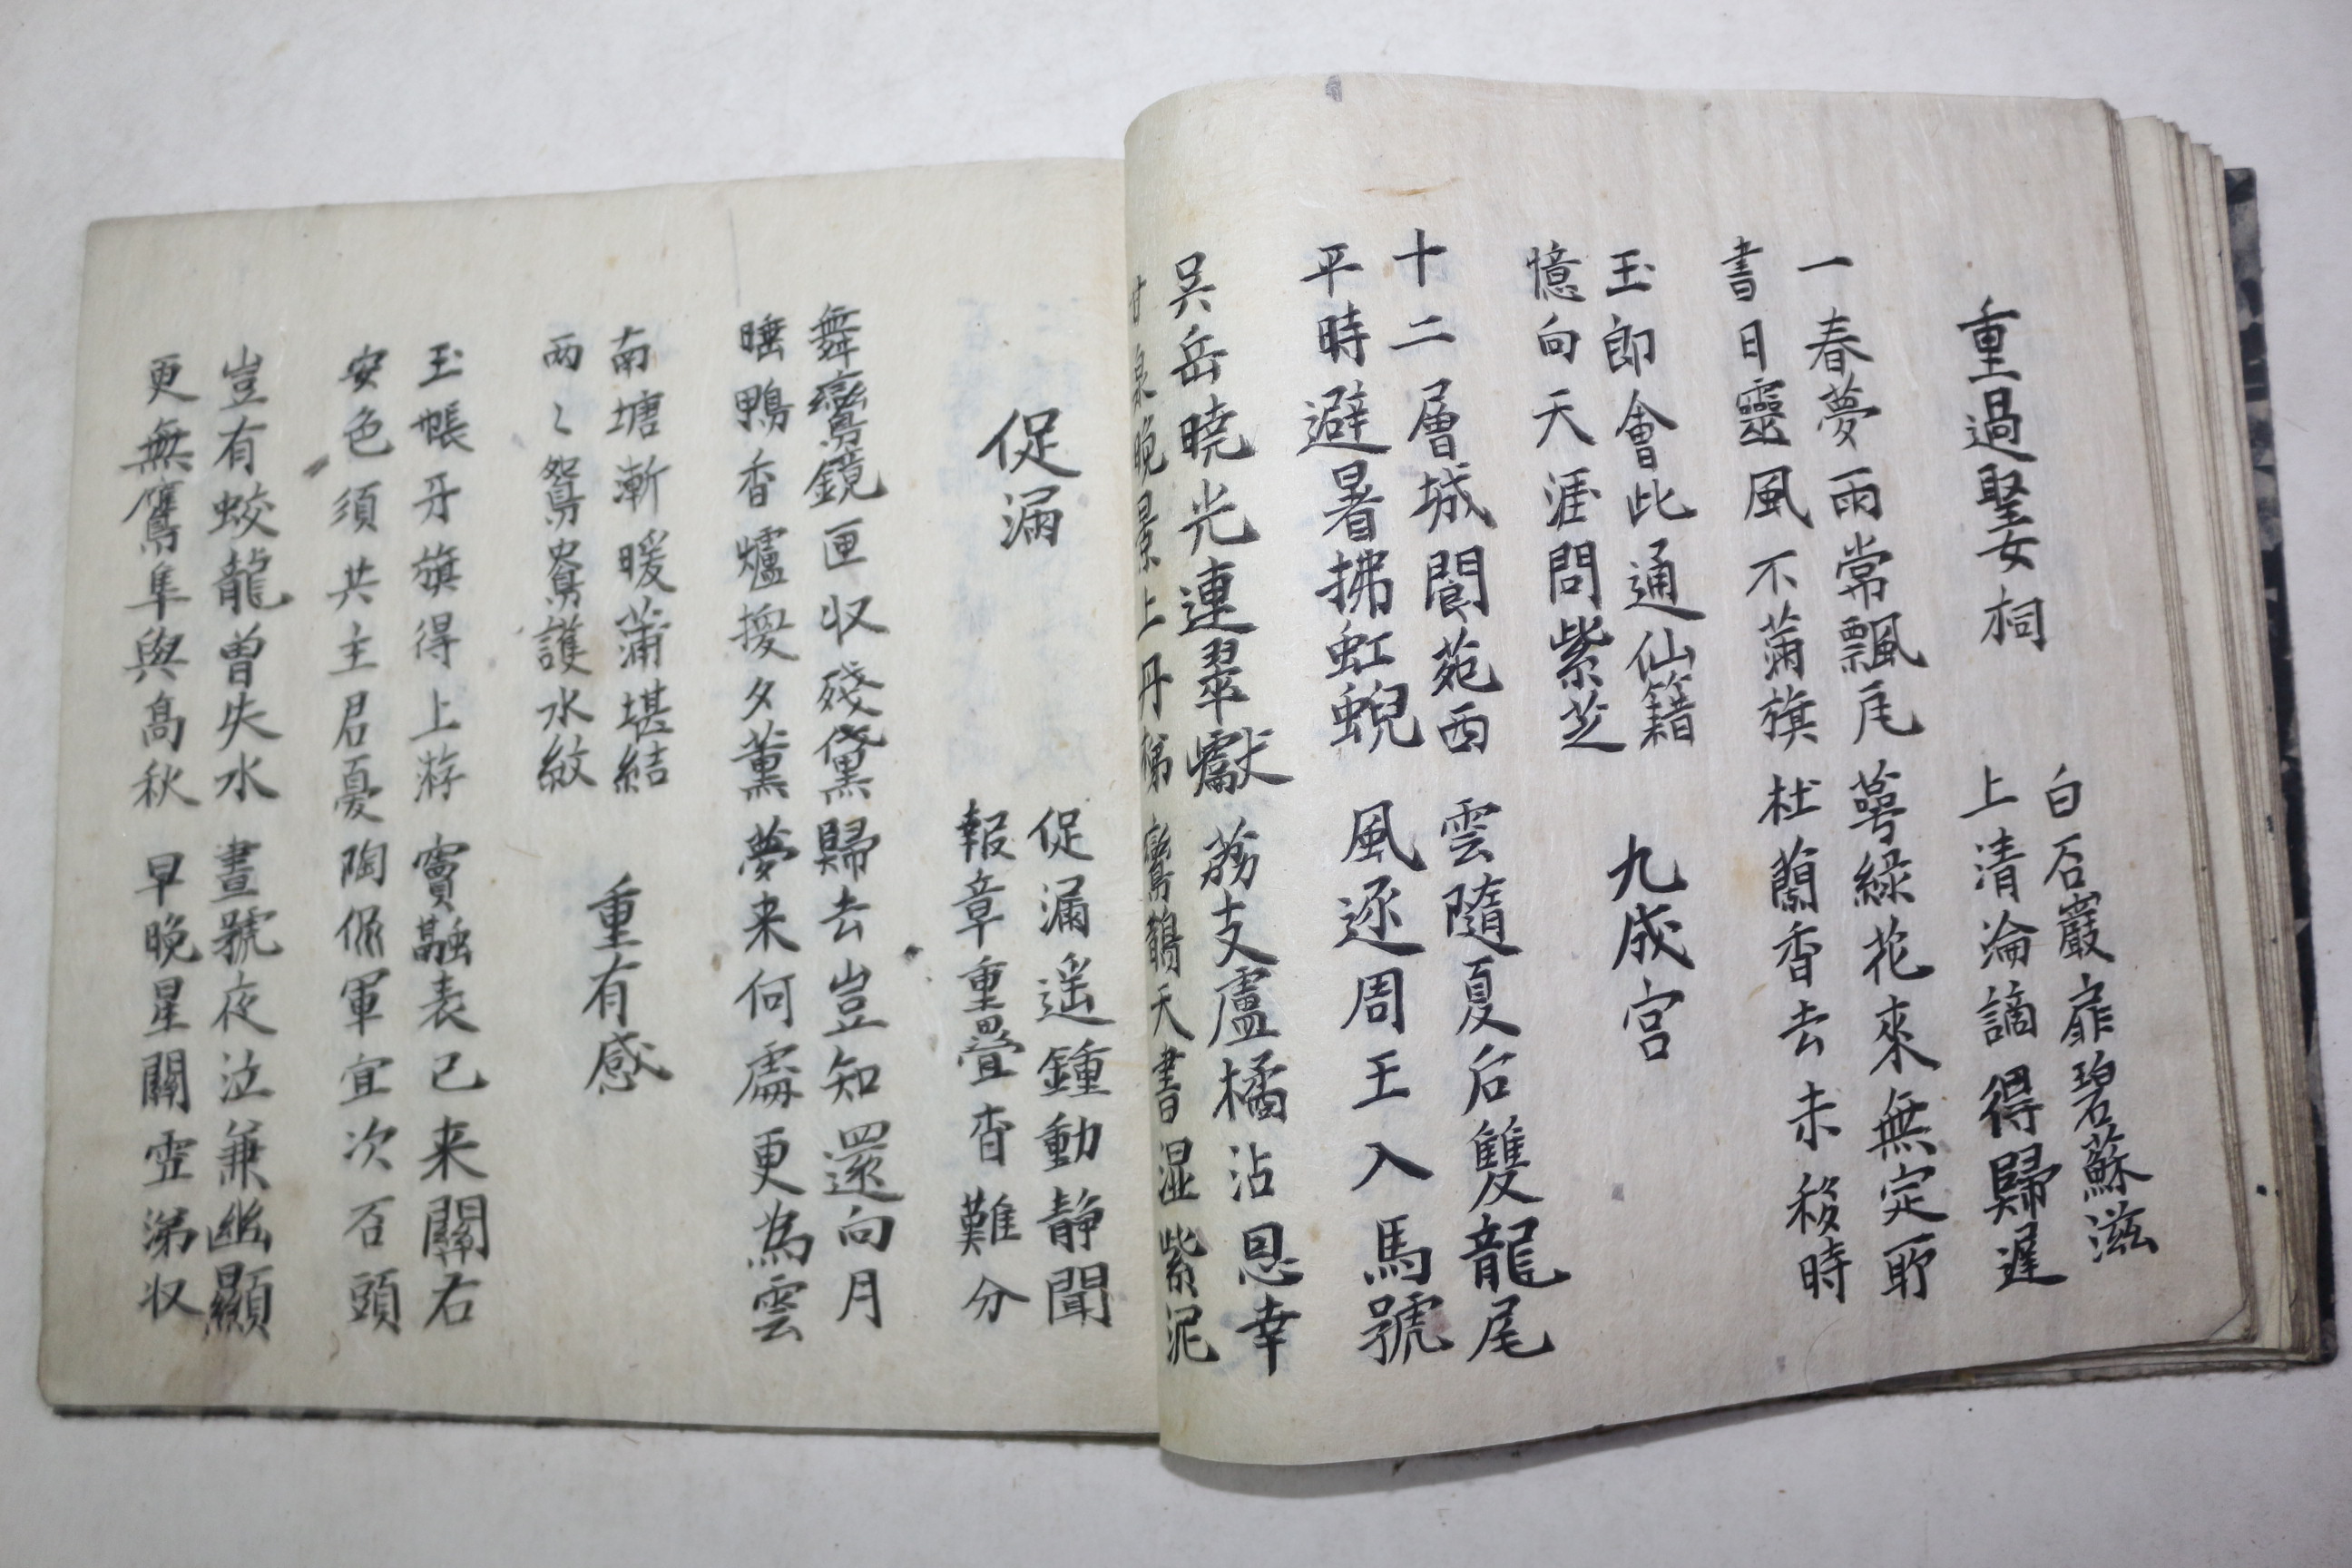 重過聖女祠
白石巖扉碧蘇滋
上清淪謫得歸遲
一春夢雨常飄瓦 萼綠花來無定所
書日靈風不蒲旗 杜蘭香去未移時
玉郎會此通仙籍
憶向天涯問紫芝
九成宮
十二層城閬苑西 雲隨夏后雙龍尾
平時避暑拂虹蜺 風逐周王入馬號
吳岳曉光連翠巘 荔支盧橘沾恩幸
甘泉晚景上丹梯 鸞鵲天書湿紫泥
促漏
促漏遥鍾動静聞
報章重疊杳難分
舞鸞鏡匣収殘黛 歸去豈知還向月
睡鴨香爐換夕薰 夢来何處更為雲
南塘漸暖蒲堪結
两〻鴛鴦護水紋
重有感
玉帳牙旗得上游 竇融表已来關右
安危須共主君憂 陶侃軍宜次石頭
豈有蛟龍曾失水 晝號夜泣兼幽顯
更無鷹隼與高秋 早晚星關雪涕収